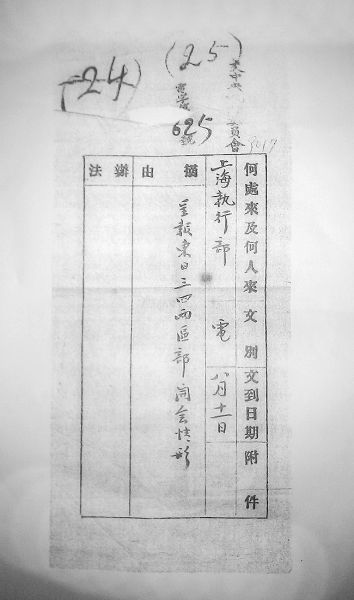 (25)
(24)
中央
員會
字第
625
號
何處來及何人來
文別
文到日期
附件
上海執行部
電
八月十一日
摘由
呈報東日三四兩區部開會情形
辦法